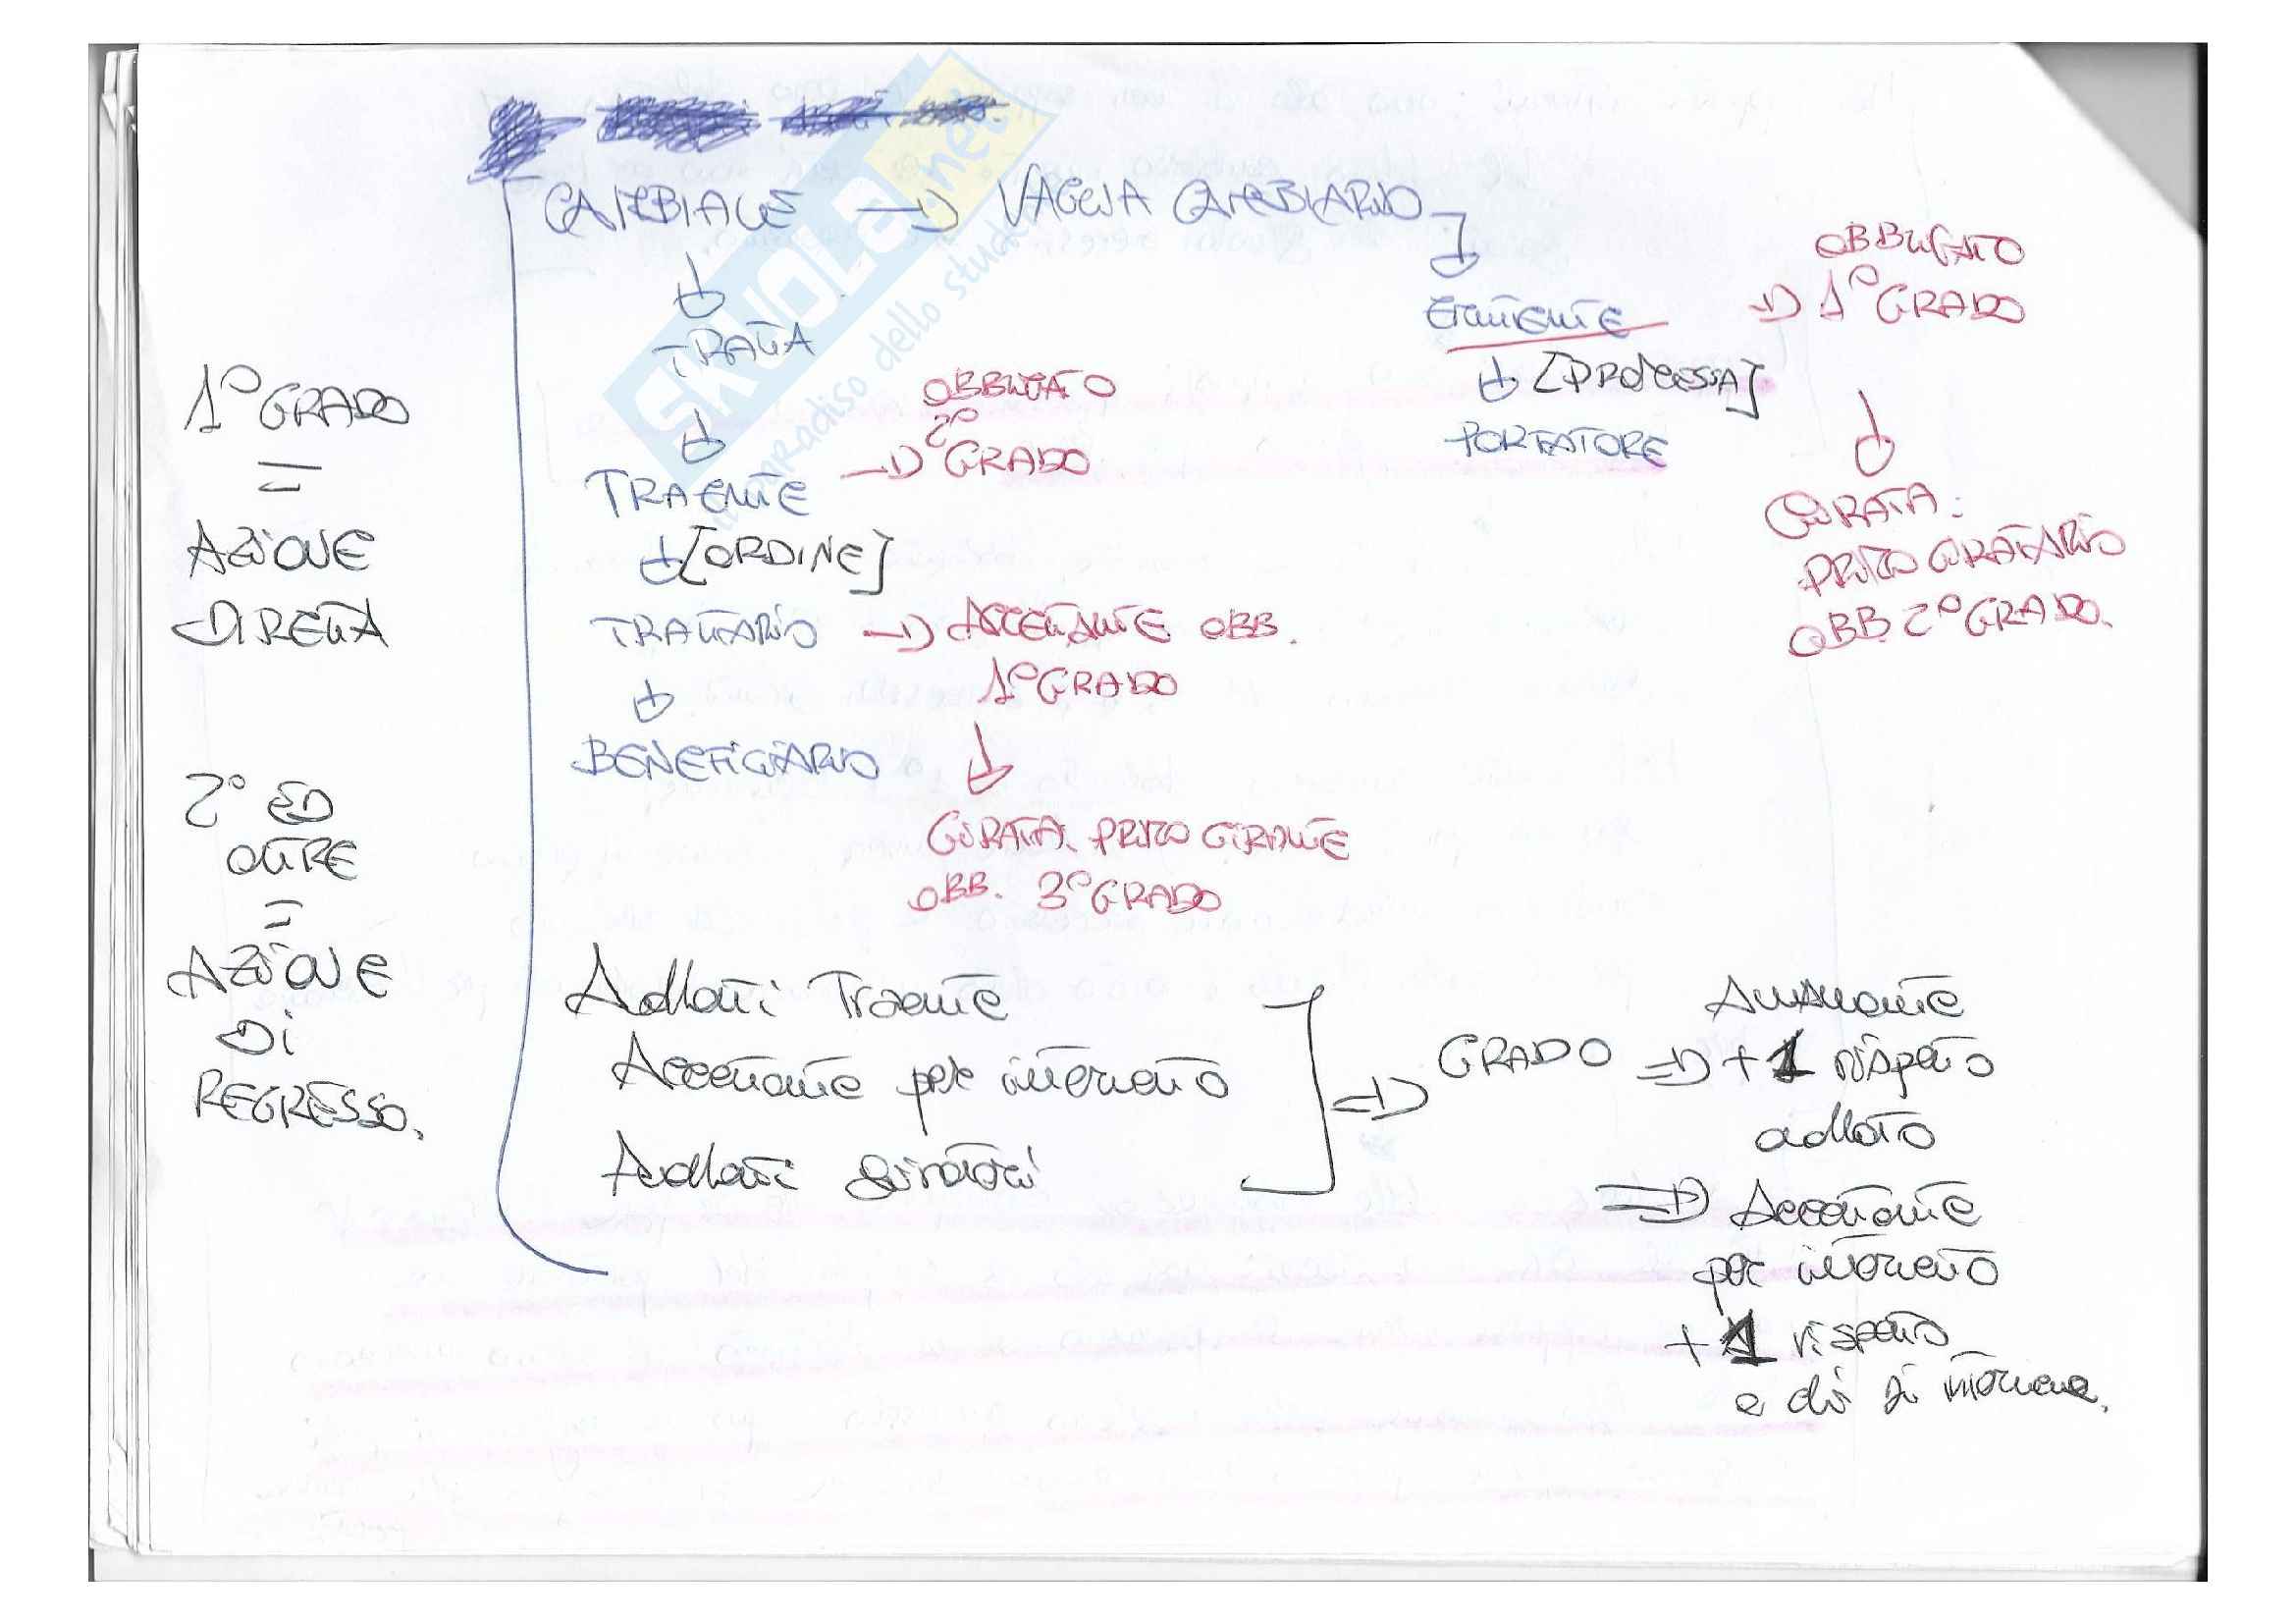 CAMBIALE → VAGLIA CAMBIARIO
TRATTA
TRAENTE → OBBLIGATO
2°
GRADO
↓ [ORDINE]
TRATTARIO → ACCETTANTE OBB.
1° GRADO
BENEFICIARIO
GIRATA. PRIMO GIRANTE
OBB. 3° GRADO
EMITTENTE → OBBLIGATO
1° GRADO
↓ [PROMESSA]
PORTATORE
GIRATA:
PRIMO GIRATARIO
OBB. 2° GRADO.
1° GRADO
=
AZIONE
DIRETTA
2° ED
OLTRE
=
AZIONE
DI
REGRESSO.
Avallanti Traente
Accettante per intervento
Avallanti giratari
⇒ GRADO ⇒ Avallante
+ 1 rispetto
avallato
⇒ Accettante
per intervento
+ 1 rispetto
a chi si interviene.
SKUOLA.net
il paradiso dello studente